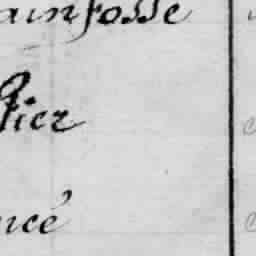 ainfosse
tier
ncé